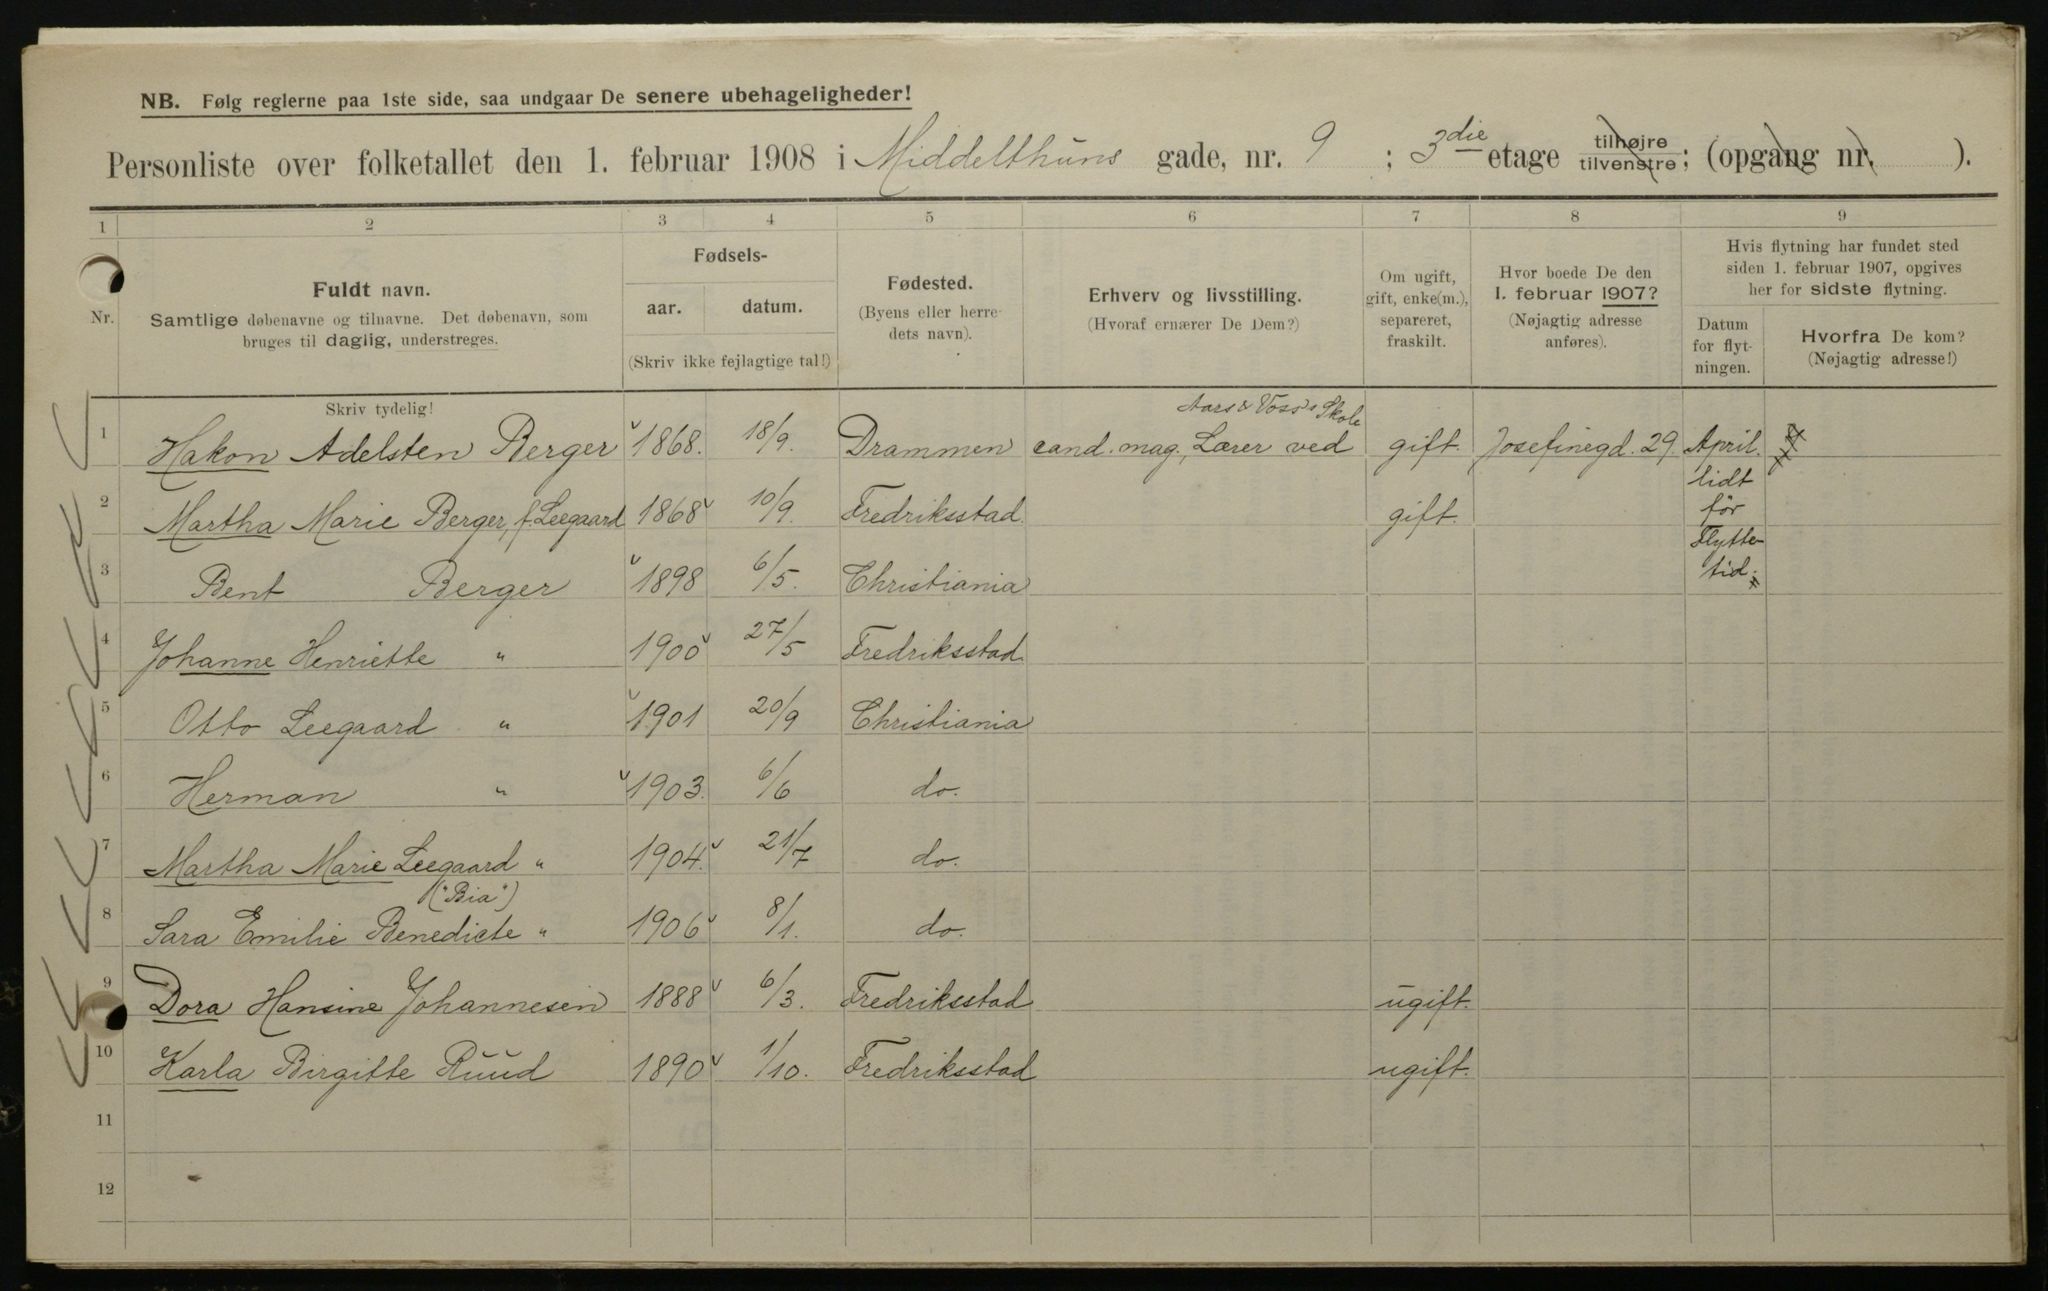 NB. Følg reglerne paa 1ste side, saa undgaar De senere ubehageligheder!
Personliste over folketallet den 1. februar 1908 i Middelthuns gade, nr. 9 ; 3die etage tilhøjre tilvenstre; (opgang nr. ).
1 2 3 4 5 6 7 8 9
Nr.
Fuldt navn.
Samtlige døbenavne og tilnavne. Det døbenavn, som
bruges til daglig, understreges.
Fødsels-
aar. datum.
(Skriv ikke fejlagtige tal!)
Fødested.
(Byens eller herre-
dets navn).
Erhverv og livsstilling.
(Hvoraf ernærer De Dem?)
Om ugift,
gift, enke(m.),
separeret,
fraskilt.
Hvor boede De den
1. februar 1907?
(Nøjagtig adresse
anføres).
Hvis flytning har fundet sted
siden 1. februar 1907, opgives
her for sidste flytning.
Datum
for flyt-
ningen.
Hvorfra De kom?
(Nøjagtig adresse!)
Skriv tydelig!
Aars & Voss's Skole
1 Hakon Adelsten Berger 1868. 18/9. Drammen cand. mag., Lærer ved gift. Josefinegd. 29. April.
lidt
2 Martha Marie Berger, f. Leegaard 1868 10/9. Fredriksstad. gift. før
Flytte-
3 Bent Berger 1898 6/5. Christiania tid.
4 Johanne Henriette " 1900 27/5 Fredriksstad.
5 Otto Leegaard " 1901 20/9 Christiania
6 Herman " 1903. 6/6 do.
7 Martha Marie Leegaard " 1904. 21/7 do.
("Bia")
8 Sara Emilie Benedicte " 1906 8/1. do.
9 Dora Hansine Johannesen 1888 6/3. Fredriksstad ugift.
10 Karla Birgitte Ruud 1890 1/10. Fredriksstad ugift.
11
12